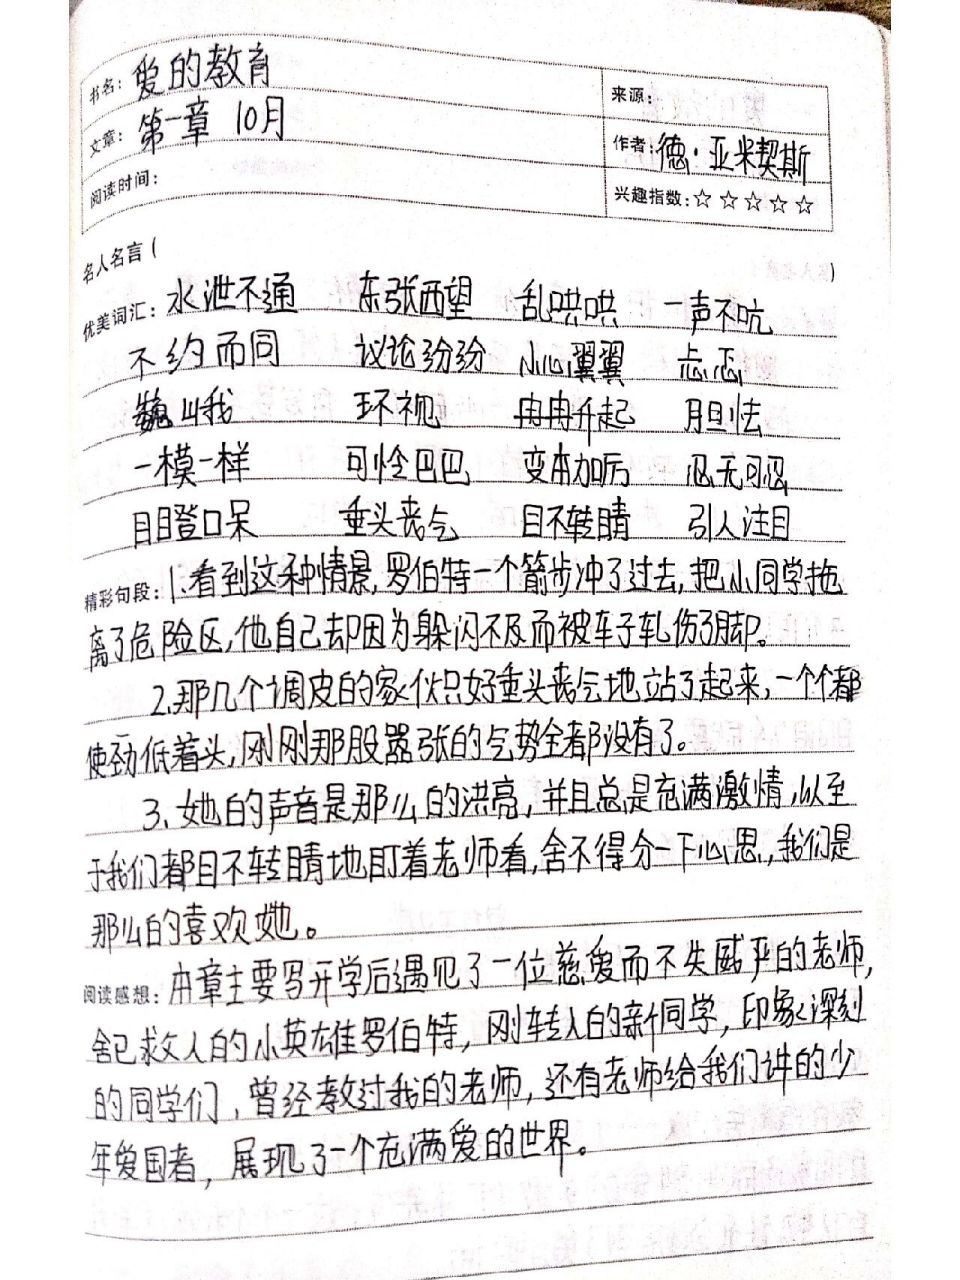 书名: 爱的教育
来源:
文章: 第一章 10月
作者: 德·亚米契斯
阅读时间:
兴趣指数: ☆ ☆ ☆ ☆ ☆
名人名言 ( )
优美词汇: 水泄不通 东张西望 乱哄哄 一声不吭
不约而同 议论纷纷 小心翼翼 忐忑
巍峨 环视 冉冉升起 胆怯
一模一样 可怜巴巴 变本加厉 忍无可忍
目瞪口呆 垂头丧气 目不转睛 引人注目
精彩句段: 1.看到这种情景,罗伯特一个箭步冲了过去,把小同学拖
离了危险区,他自己却因为躲闪不及而被车子轧伤了脚。
2.那几个调皮的家伙只好垂头丧气地站了起来,一个个都
使劲低着头,刚刚那股嚣张的气势全都没有了。
3、她的声音是那么的洪亮,并且总是充满激情,以至
于我们都目不转睛地盯着老师看,舍不得分一下心思,我们是
那么的喜欢她。
阅读感想: 本章主要写开学后遇见了一位慈爱而不失威严的老师,
舍己救人的小英雄罗伯特,刚转入的新同学,印象深刻
的同学们、曾经教过我的老师,还有老师给我们讲的少
年爱国者,展现了一个充满爱的世界。